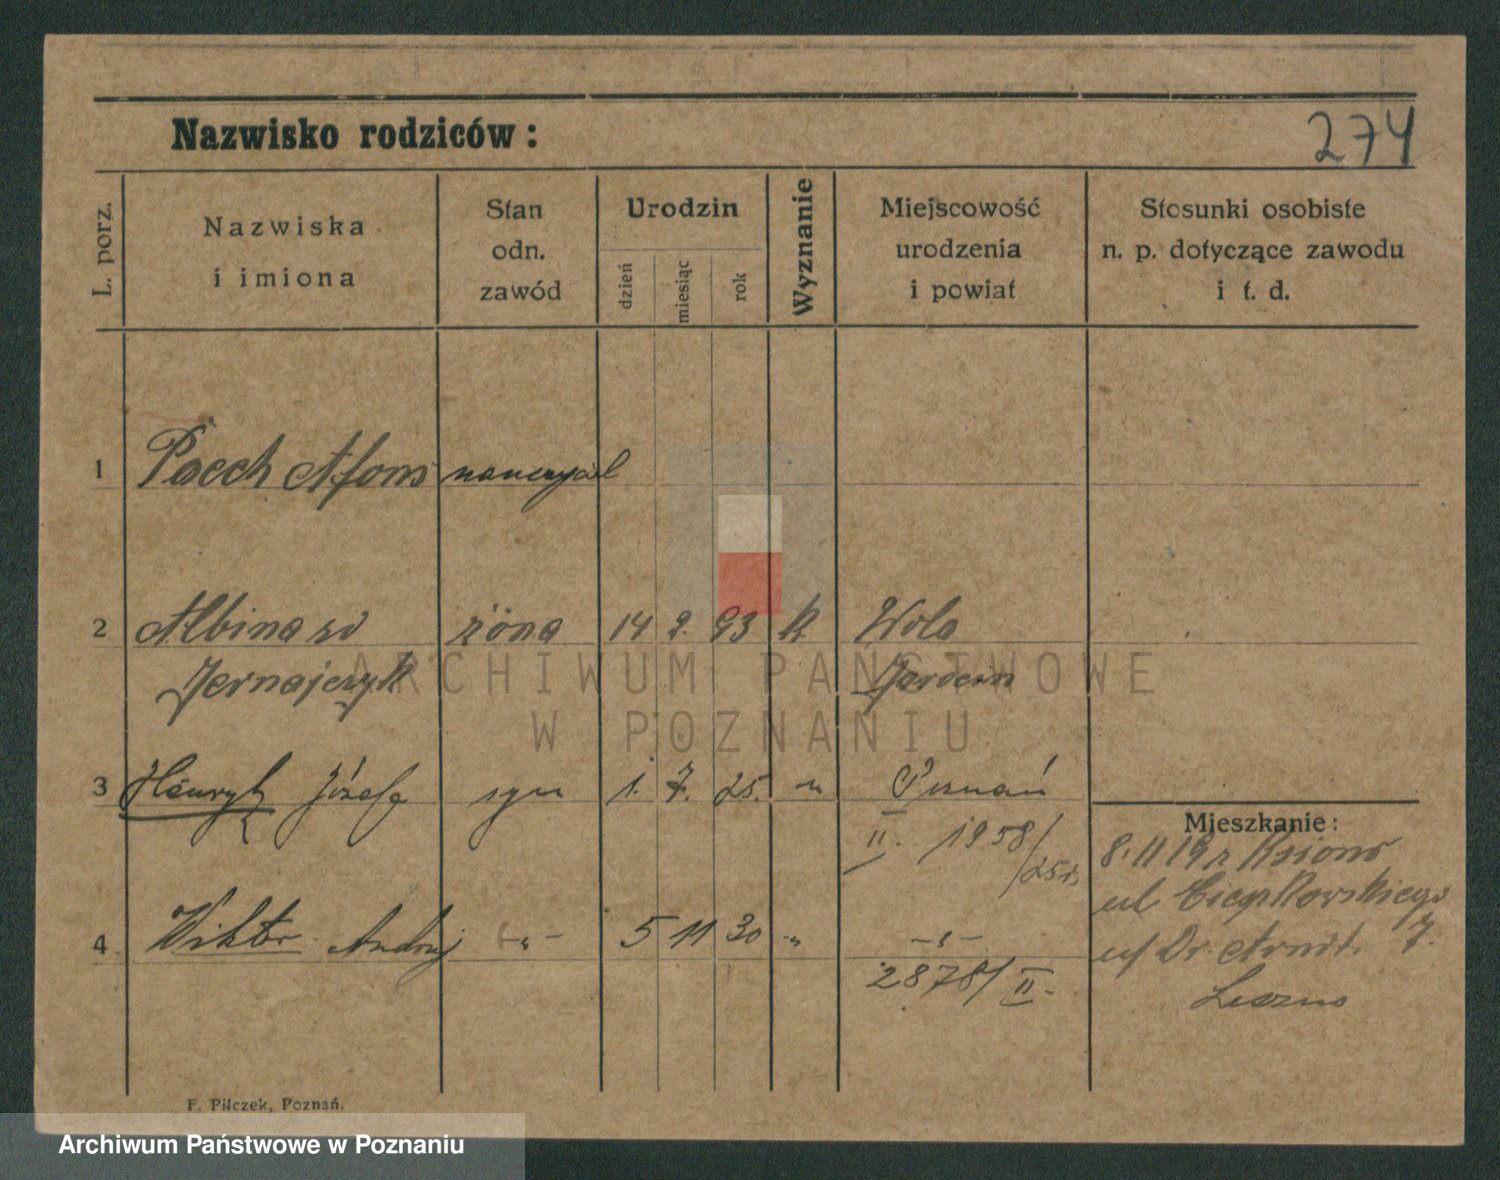 Nazwisko rodziców:
274
L. porz.
Nazwiska
i imiona
Stan
odn.
zawód
Urodzin
dzień
miesiąc
rok
Wyznanie
Miejscowość
urodzenia
i powiat
Stosunki osobiste
n. p. dotyczące zawodu
i t. d.
1 Paech Alfons nauczyciel
2 Albina zd żona 14 2. 93 k. Wola
Jernajczyk Jarocin
ARCHIWUM PAŃSTWOWE
W POZNANIU
3 Henryk Józef syn 1. 7. 25. " Poznań
II. 1958/
25 r.
Mieszkanie:
8.11 19 r Ksions
ul Cieszkowskiego
7.
4 Wiktor Andrzej -"- 5 11 30 " -"-
2878/ II.
u/ Dr. Arndt.
Leszno
F. Pilczek, Poznań.
Archiwum Państwowe w Poznaniu